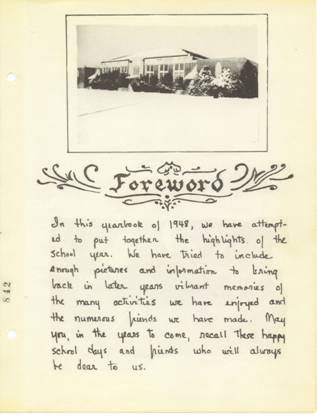 Foreword
In this yearbook of 1948, we have attempt-
ed to put together the highlights of the
school year. We have tried to include
enough pictures and information to bring
back in later years vibrant memories of
the many activities we have enjoyed and
the numerous friends we have made. May
you, in the years to come, recall these happy
school days and friends who will always
be dear to us.
842